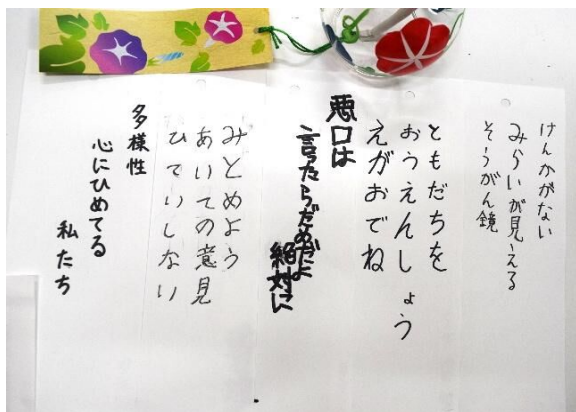 けんかがない
みらいが見える
そうがん鏡
ともだちを
おうえんしょう
えがおでね
悪口は
言ったらだめだよ
絶対に
みとめよう
あいての意見
ひていしない
多様性
心にひめてる
私たち